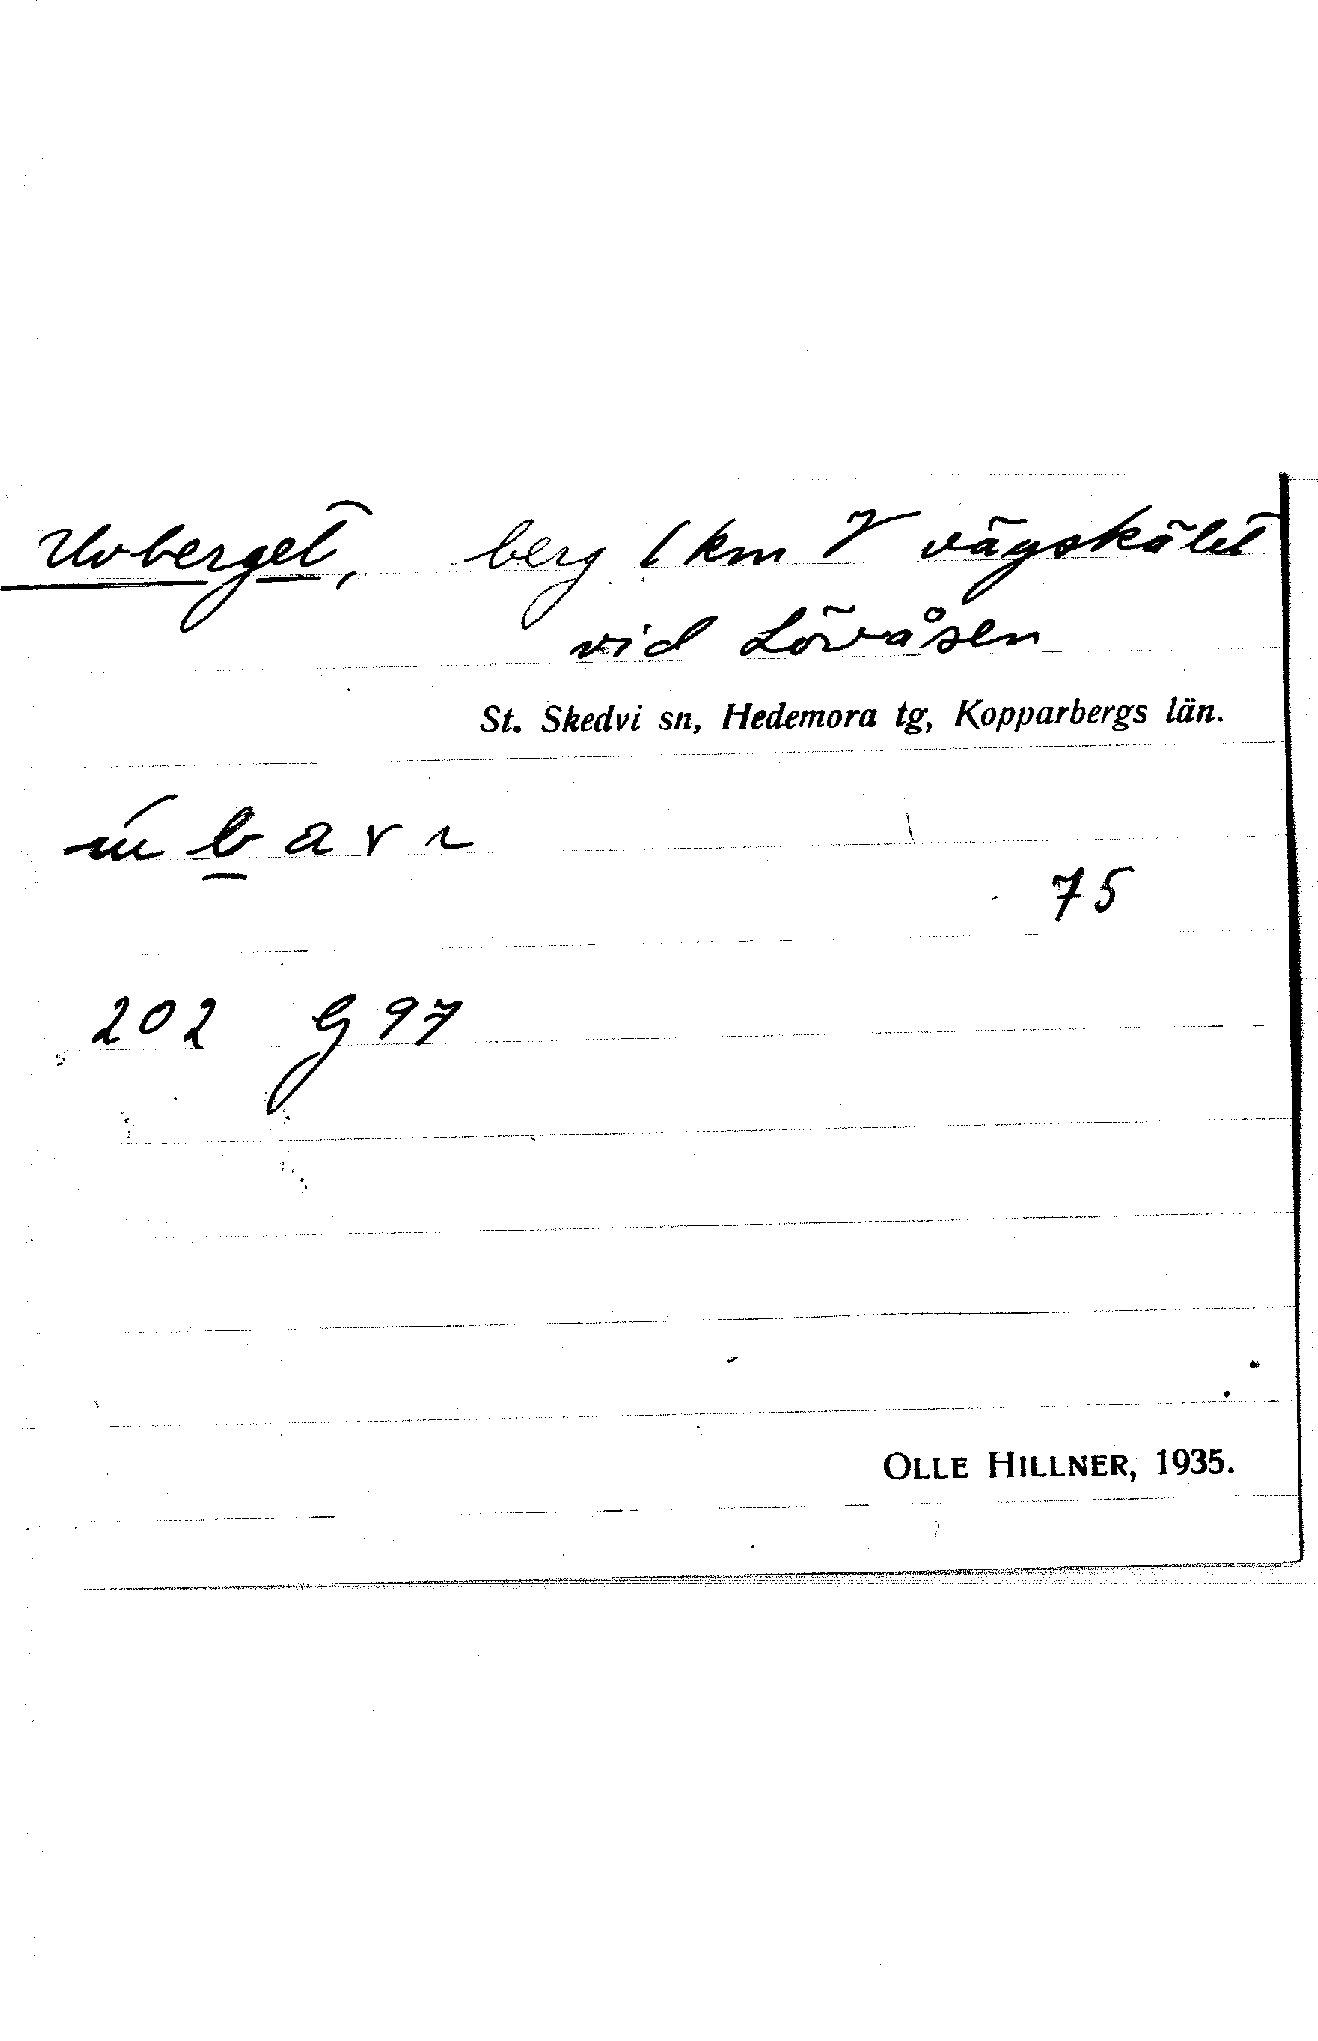 Uvberget, berg 1 km V vägskälet
vid Lövåsen
St. Skedvi sn, Hedemora tg, Kopparbergs län.
75
202 G 97
OLLE HILLNER, 1935.